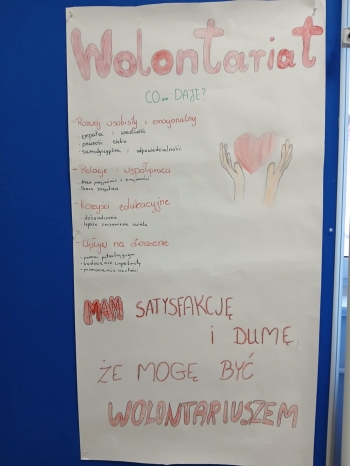 Wolontariat
CO... DAJE?
- Rozwój osobisty i emocjonalny
- empatia i wrażliwość
- pewność siebie
- samodyscyplina i odpowiedzialność
- Relacje i współpraca
- nowe przyjaźnie i znajomości
- praca zespołowa
- Korzyści edukacyjne
- doświadczenie
- lepsze zrozumienie świata
- Wpływ na otoczenie
- pomoc potrzebującym
- budowanie wspólnoty
- promowanie wartości
MAM SATYSFAKCJĘ
i DUMĘ,
ŻE MOGĘ BYĆ
WOLONTARIUSZEM